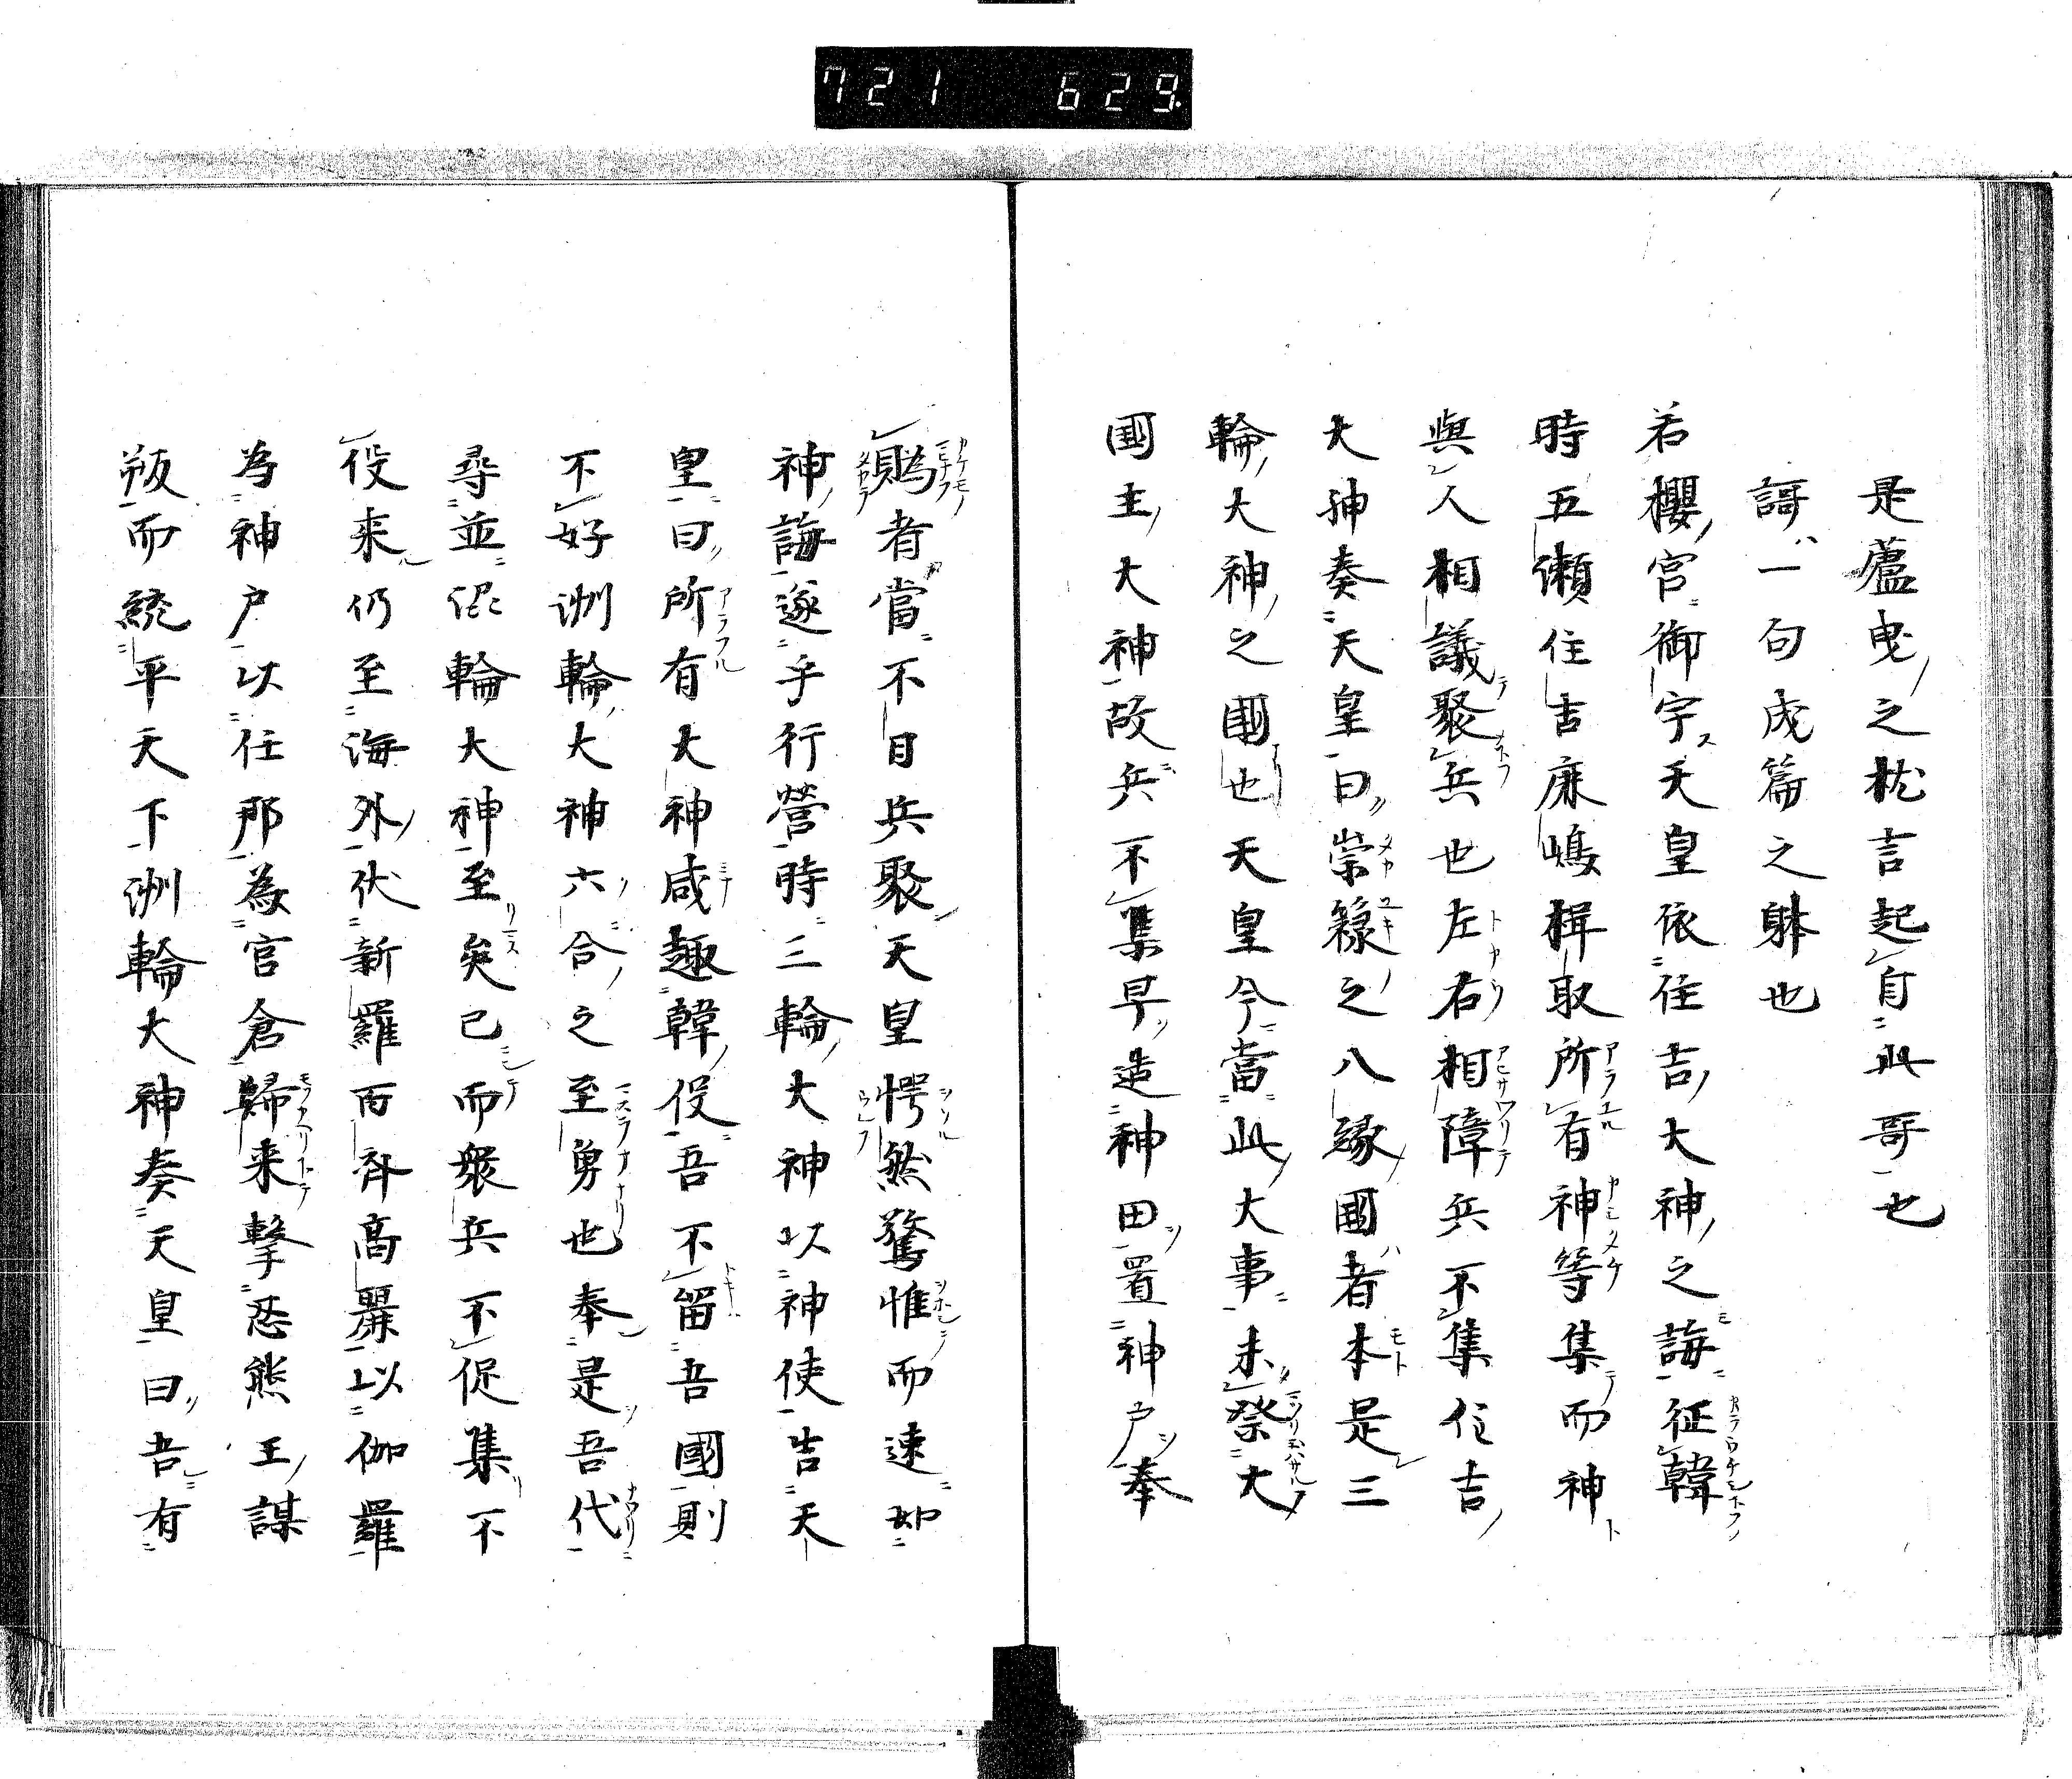 721 629
是蘆曳之枕言起自此哥也
謌一句成篇之躰也
若櫻宮御宇天皇依住吉大神之誨征韓
時五瀬住吉麻嶋楫取所有神等集而神
與人相議聚兵也左右相障兵不集住吉
大神奏天皇曰崇之八縁國者本是三
輪大神之國也天皇今當此大事未祭大
國主大神故兵不集早造神田置神戸奉
賜者當不日兵聚天皇愕然驚惟而速如
神誨遂乎行營時三輪大神以神使告天
皇曰所有大神咸趣韓役吾不留吾國則
不好洲輪大神六合之至勇也奉是吾代
尋並倶輪大神至矣已而衆兵不促集不
役来仍至海外伏新羅百済高麗以伽羅
為神戸以任那為官倉歸来撃忍熊王謀
叛而統平天下洲輪大神奏天皇曰吾有